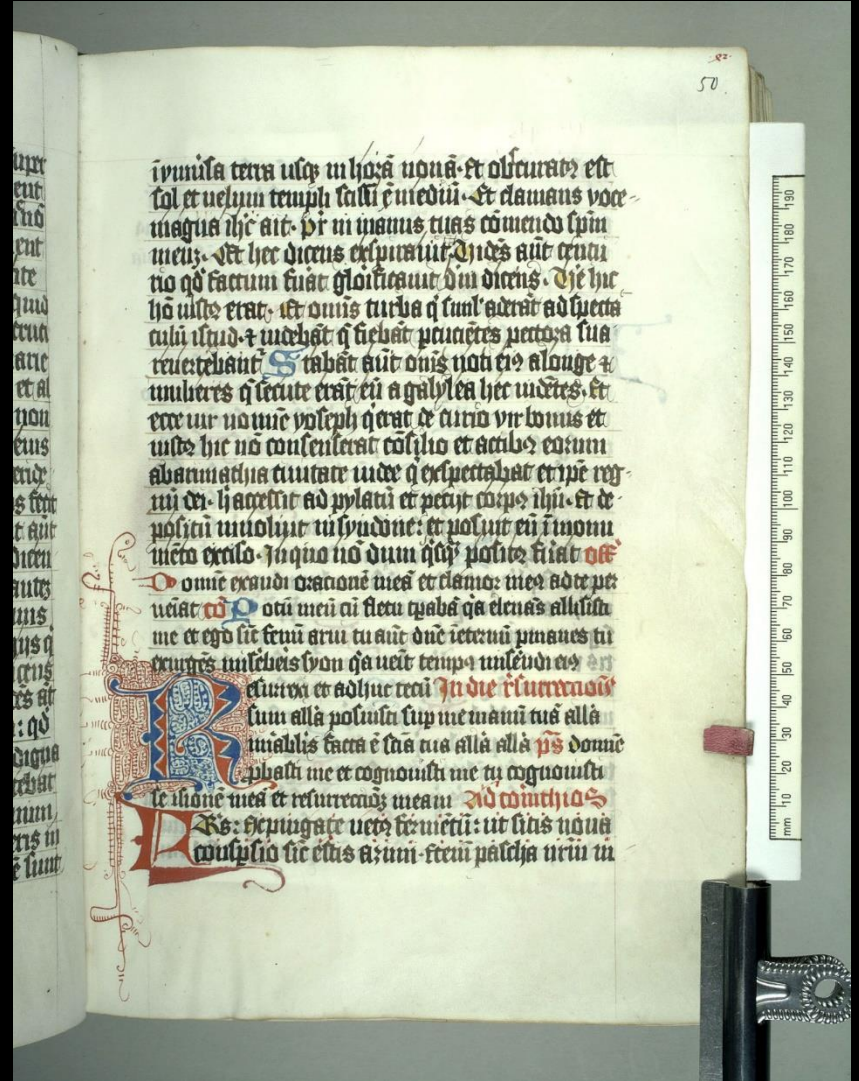 50
ī vniūsa terra usqꝫ in horā nonā. Et obscuratꝰ est
sol et uelum templi scissū ē mediū. Et clamans voce
magna ihc̄ ait. pr̄ in manus tuas cōmendo spm̄
meuꝫ. Et hec dicens exspirauit. Vidēs aūt centu
rio qd̄ factum fuāt glorificauit dm̄ dicens. Vē hic
hō iustꝰ erat. Et omīs turba q̄ siml' aderāt ad specta
culū istud. ⁊ uidebāt q̄ fiebāt ꝑcuciētes pectora sua
reuertebant̄ Stabāt aūt om̄s noti eiꝰ alonge ⁊
mulieres q̄ secute erāt eū a galylea hec uidētes. Et
ecce uir nomīe yoseph q̄ erat de curio vir bonus et
iustꝰ hic nō consenserat cōsilio et actibꝰ eorum
abarimathia ciuitate iudee q̄ exspectabat et ipē reg
nū dei. h̄ accessit ad pylatū et pecijt corpꝰ ihū. Et de
positū inuoluit in syndone: et posuit eū ī monu
mēto exciso. In quo nō dum q̄sqꝫ positꝰ fuāt off̄
Domīe exaudi oracionē meā et clamor meꝰ ad te per
ueīat cō Potū meū cū fletu tꝑabā qa eleuās allisisti
me et ego sic̄ fenū arui tu aūt dn̄e ieternū ꝑmanes tu
exurgēs misēbeis syon q̄a ueīt tempꝰ misēndi eiꝰ
Resurrexi et adhuc tecū In die r̄surrectiois
sum allā posuisti sup me manū tuā allā
mīablis facta ē scīa tua allā allā ps̄ domīe
ꝓbasti me et cognouisti me tu cognouisti
se ssionē meā et resurrectioꝫ meam Ad corinthios
FRs: Expurgate uetꝰ fermētū: ut sitis noua
conspsio sic̄ estis azimi. Etenī pascha nr̄m in